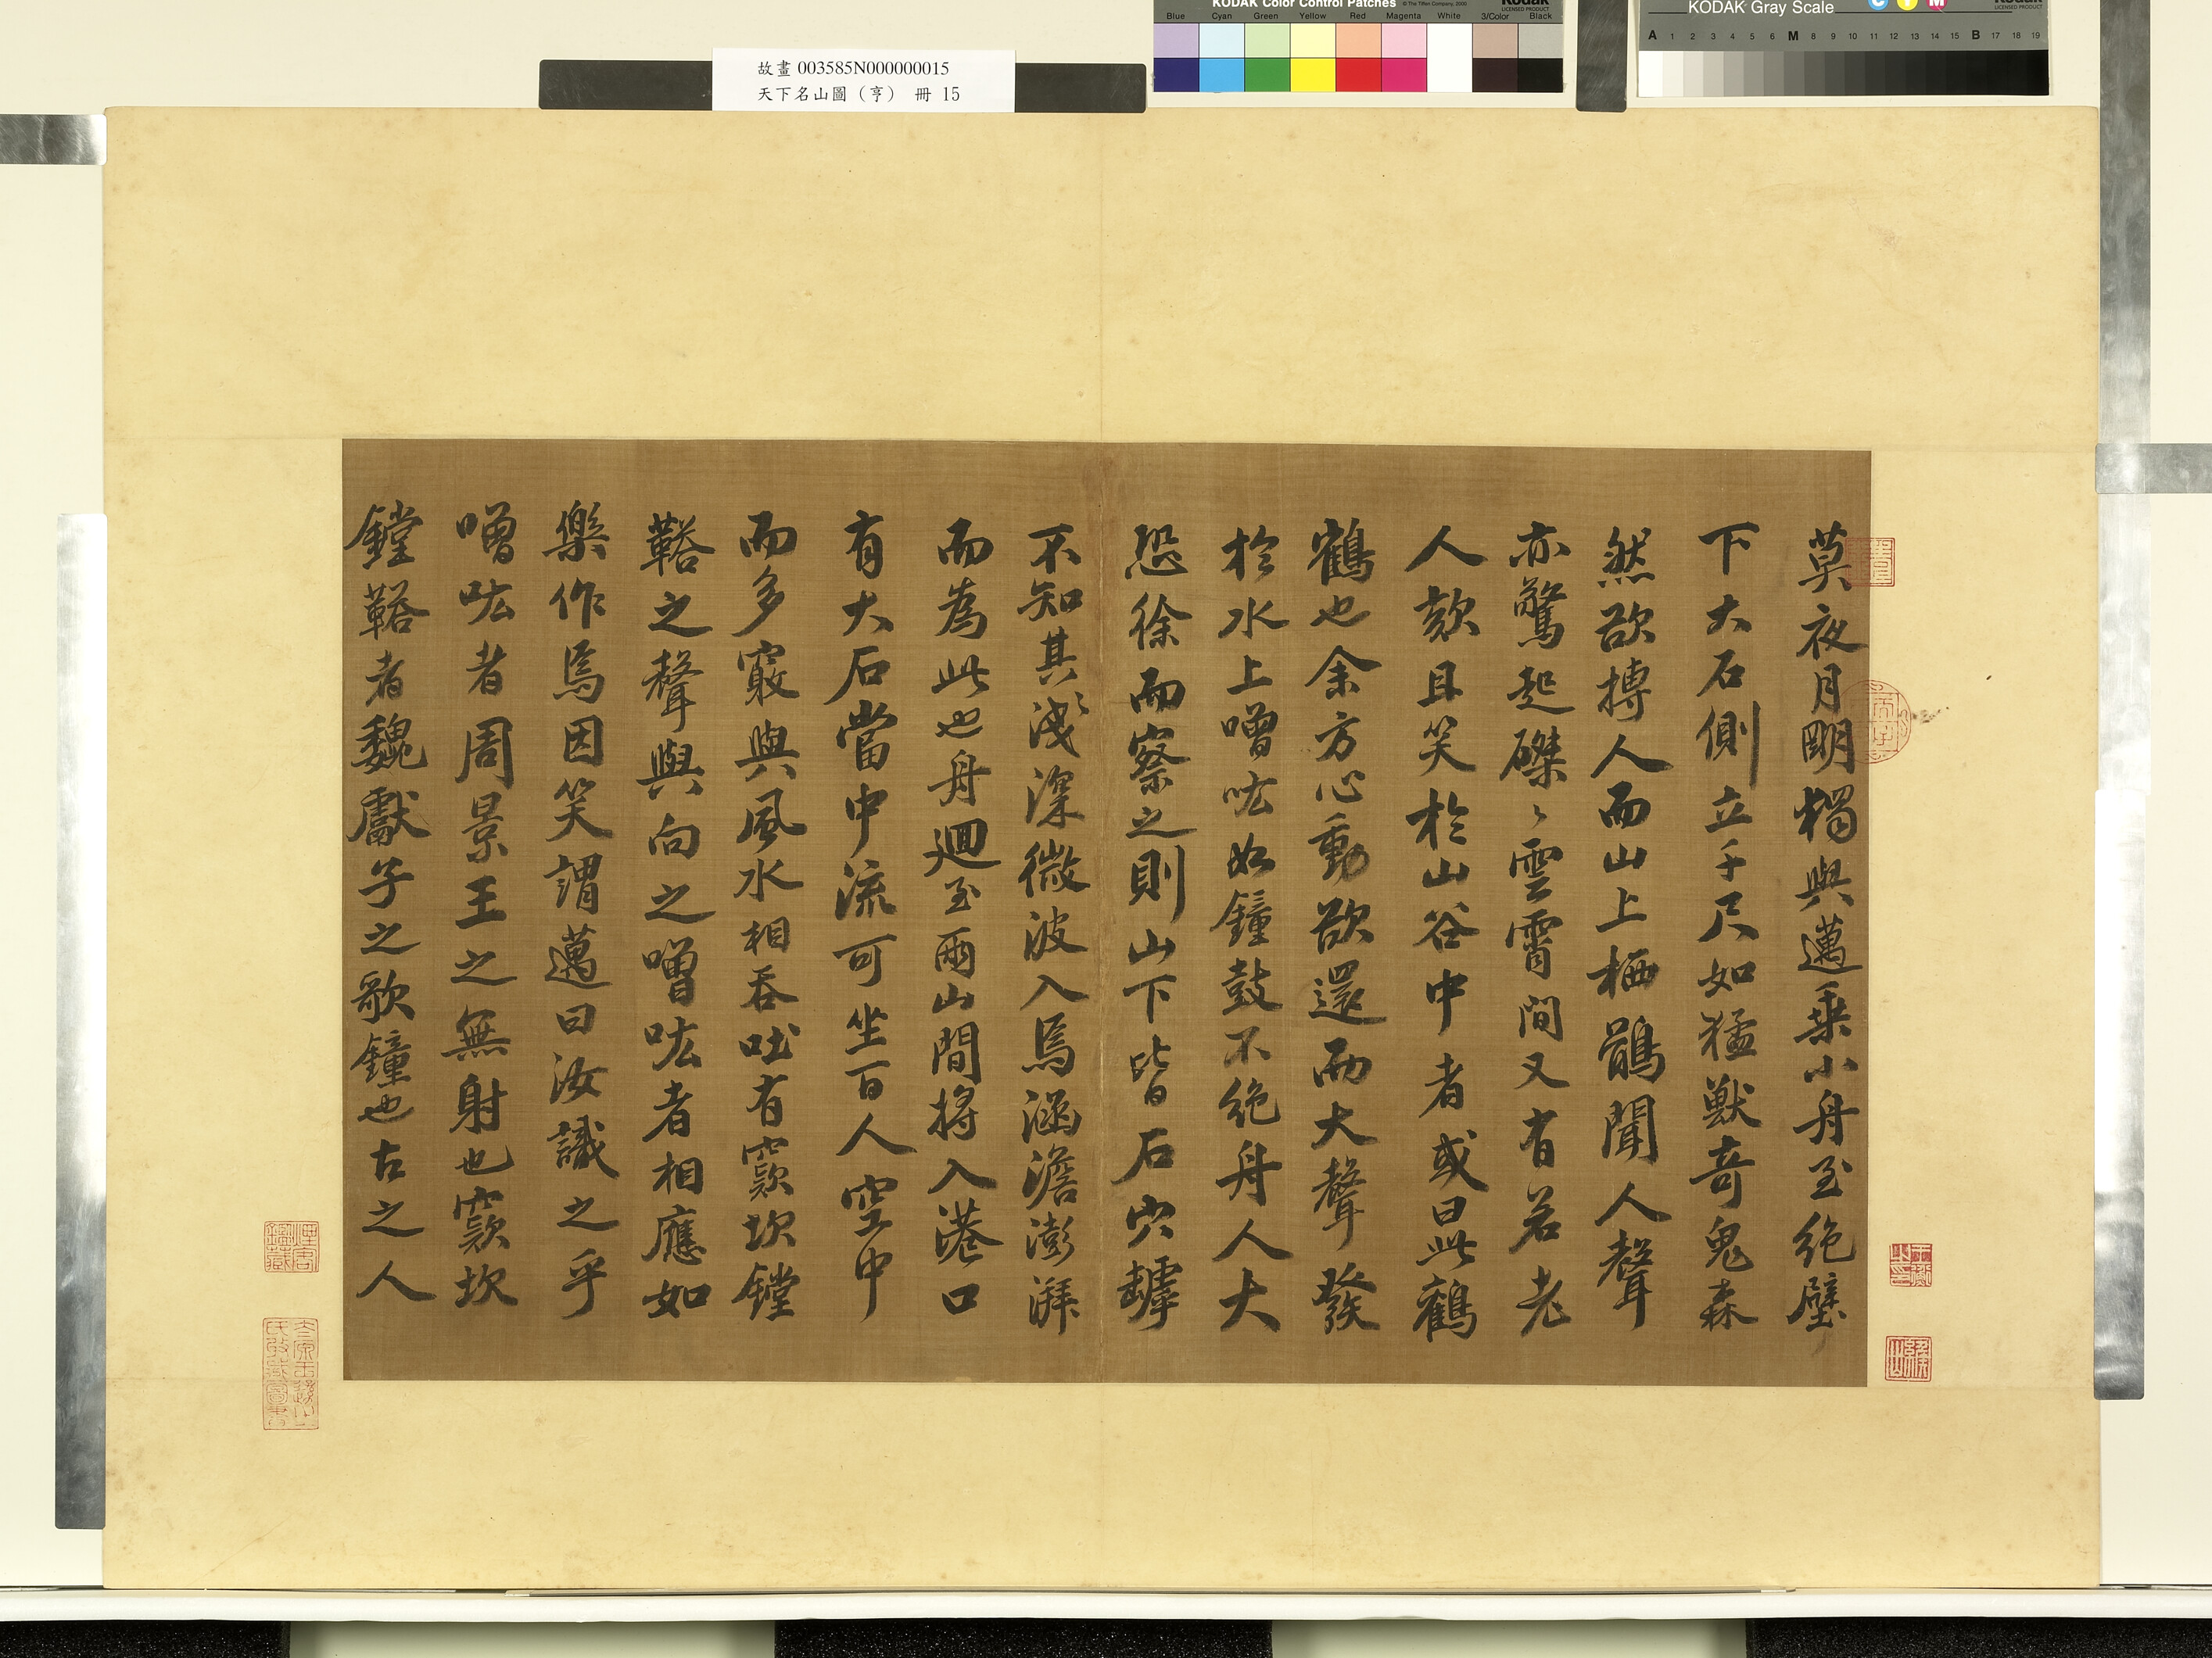 KODAK Color Control Patches © The Tiffen Company, 2000 Kodak
LICENSED PRODUCT
Blue Cyan Green Yellow Red Magenta White 3/Color Black
KODAK Gray Scale C Y M Kodak
LICENSED PRODUCT
A 1 2 3 4 5 6 M 8 9 10 11 12 13 14 15 B 17 18 19
故畫 003585N000000015
天下名山圖（亨） 冊 15
莫夜月明獨與邁乗小舟至絶壁
下大石側立千尺如猛獸奇鬼森
然欲搏人而山上栖鶻聞人聲
亦驚起磔〻雲霄間又有若老
人欬且笑於山谷中者或曰此鸛
鶴也余方心動欲還而大聲發
於水上噌吰如鐘鼓不絶舟人大
恐徐而察之則山下皆石穴罅
不知其淺深微波入焉涵澹澎湃
而為此也舟迴至兩山間將入港口
有大石當中流可坐百人空中
而多竅與風水相吞吐有窾坎鏜
鞳之聲與向之噌吰者相應如
樂作焉因笑謂邁曰汝識之乎
噌吰者周景王之無射也窾坎
鏜鞳者魏獻子之歌鐘也古之人